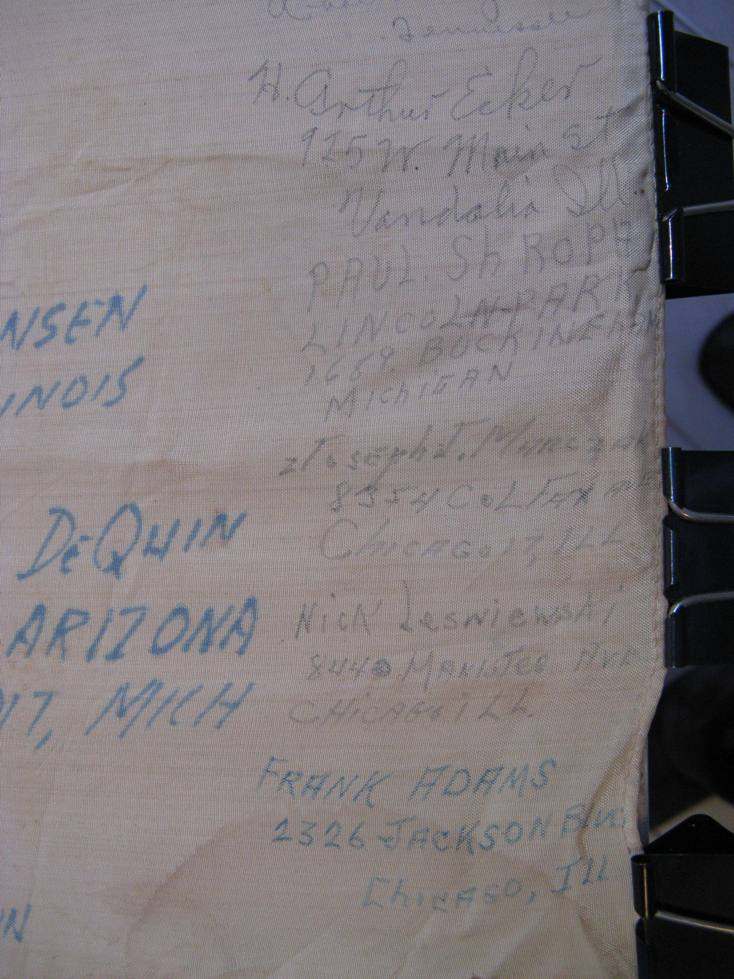 Tennessee
H. Arthur Ecker
W. Main St
Vandalia Ill.
PAUL ShROPE
LINCOLN PARK
1659 BUCKINGHAM
MIChIGAN
NSEN
INOIS
Joseph J.
8354 COLFAX AVE
CHICAGO 17, ILL.
DeQUIN
ARIZONA
IT, MICH
NICK Lesniewski
8440 MANISTEE AVE
CHICAGO ILL.
FRANK ADAMS
2326 JACKSON BLVD
ChICAGO, Ill
N